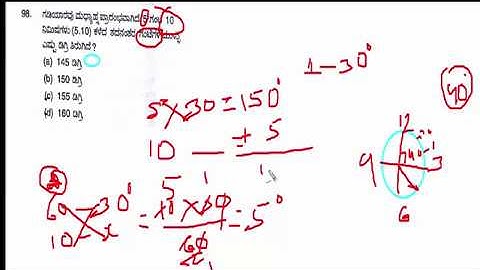 98. ಗಡಿಯಾರವು ಮಧ್ಯಾಹ್ನ ಪ್ರಾರಂಭವಾಗಿದೆ. 5 ಗಂಟೆ 10
ನಿಮಿಷಗಳು (5.10) ಕಳೆದ ತದನಂತರ ಗಂಟೆಗಳ ಮುಳ್ಳು
ಎಷ್ಟು ಡಿಗ್ರಿ ತಿರುಗಿದೆ?
(a) 145 ಡಿಗ್ರಿ
(b) 150 ಡಿಗ್ರಿ
(c) 155 ಡಿಗ್ರಿ
(d) 160 ಡಿಗ್ರಿ
1-30°
90°
5×30=150°
10 — +5
12
9 3
6
60 - 30°
10 - x
= 10×30/60 = 5°